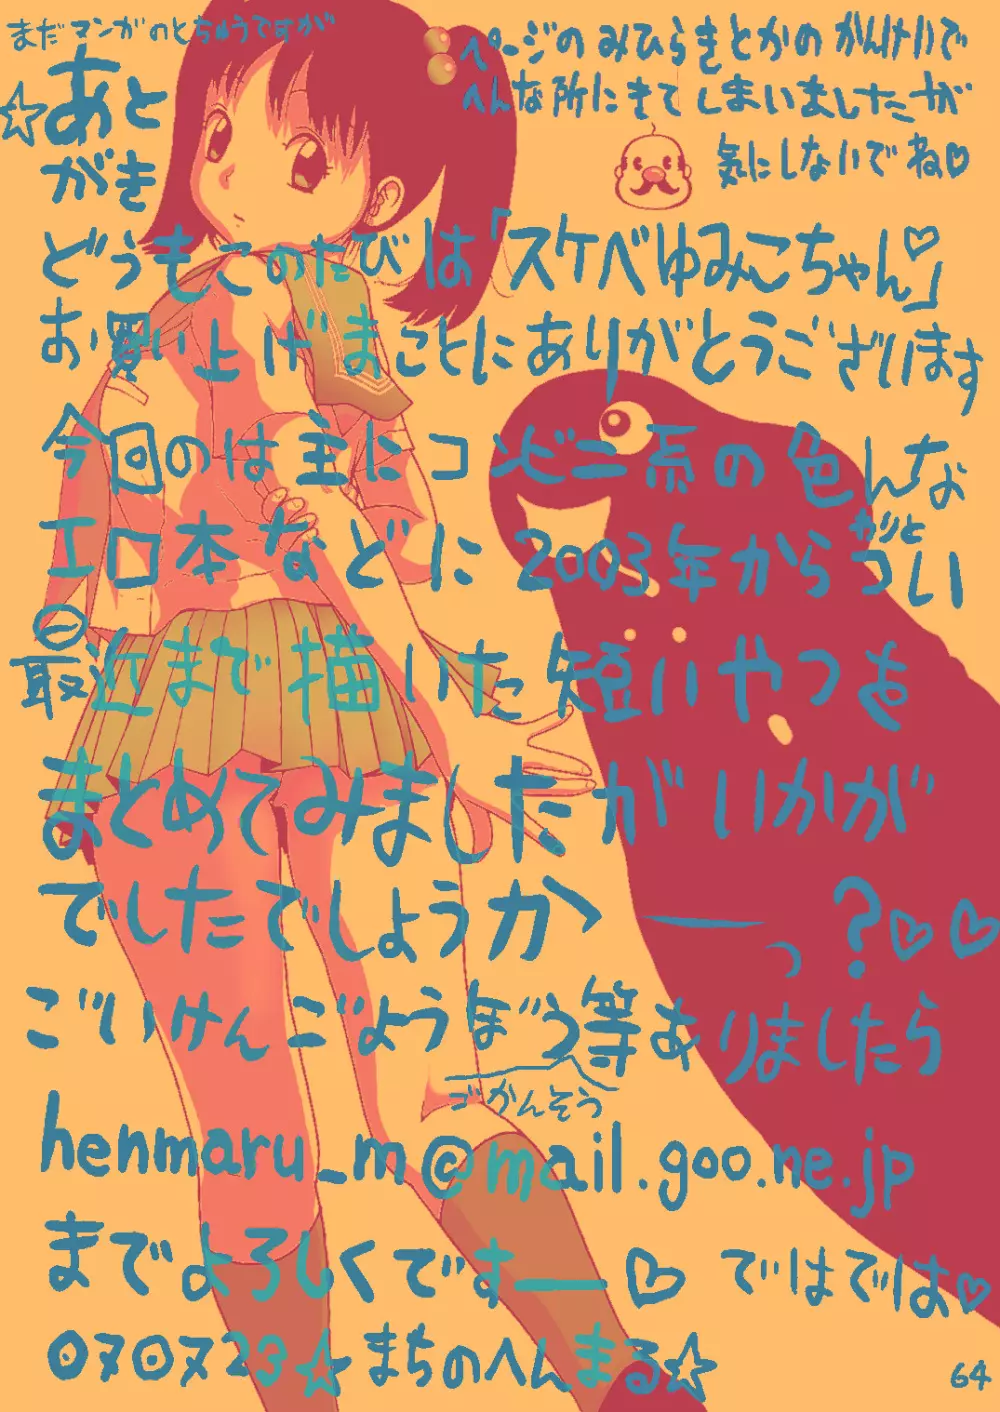 まだマンガのとちゅうですが
☆あと
がき
ページのみひらきとかのかんけいで
へんな所にきてしまいましたが
気にしないでね♡
どうもこのたびは「スケベゆみこちゃん♡」
お買い上げまことにありがとうございます
今回のは主にコンビニ系の色んな
エロ本などに2003年からつい
最近まで描いた短いやつを
まとめてみましたがいかが
でしたでしょうかーっ?♡♡
ごいけんごようぼう等ありましたら
ごかんそう
henmaru_m@mail.goo.ne.jp
までよろしくですー♡ ではでは♡
070723☆まちのへんまる☆
64